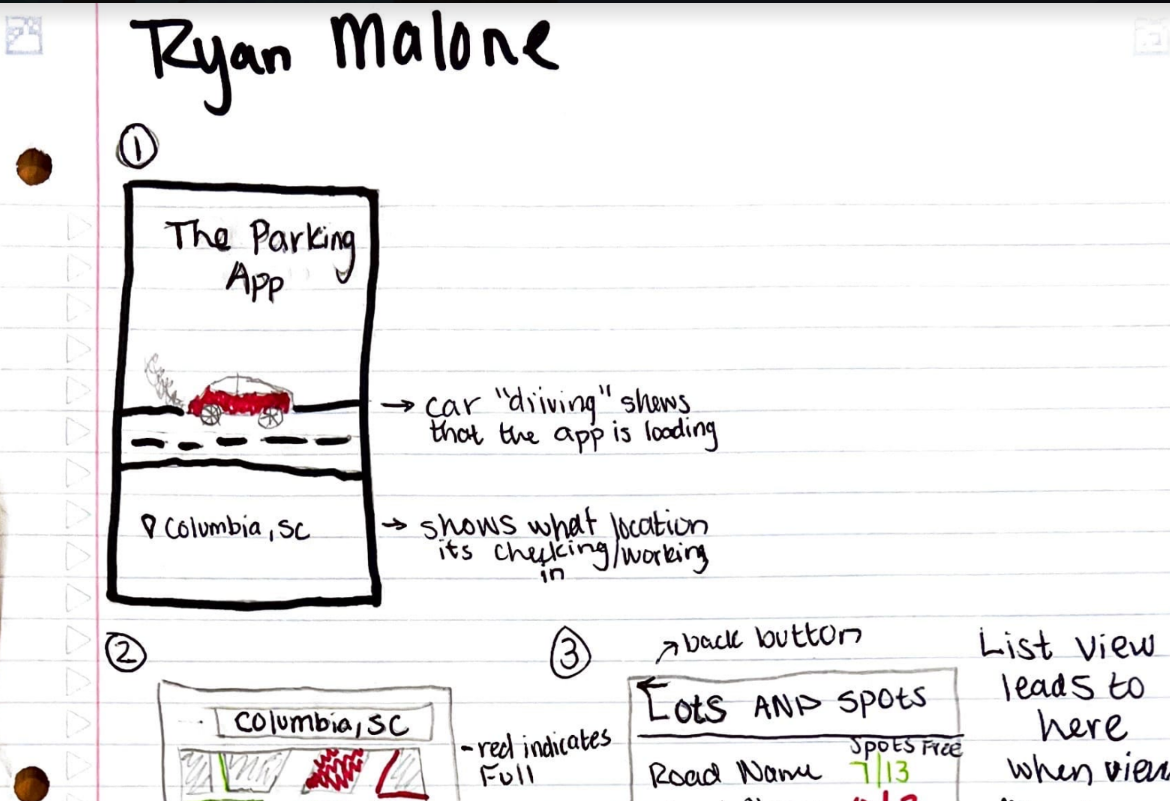 Ryan Malone
①
The Parking
App
→ car "driving" shows
that the app is loading
Columbia, SC
→ shows what location
its checking/working
in
②
Columbia, SC
-red indicates
Full
③
↗back button
← Lots AND Spots
Spots Free
Road Name 7/13
List view
leads to
here
when view